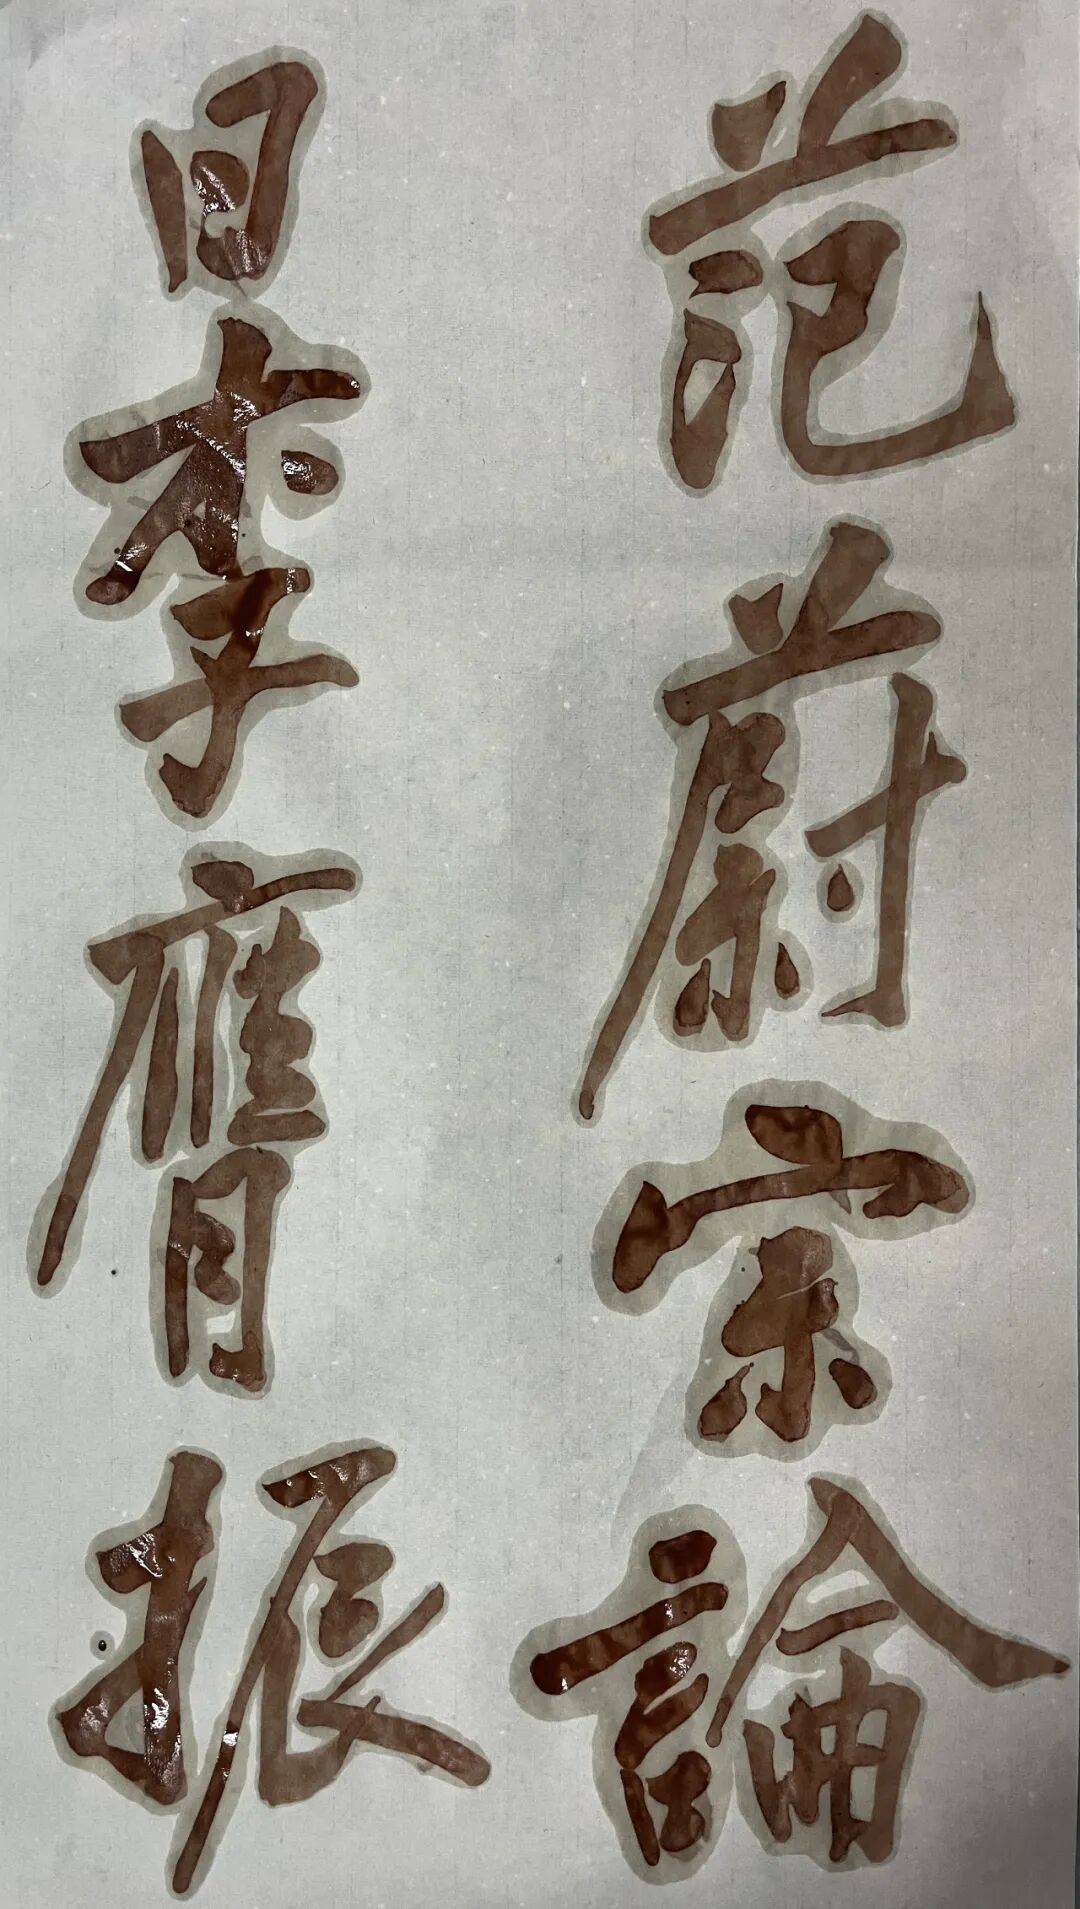 范蔚宗論
曰李膺振